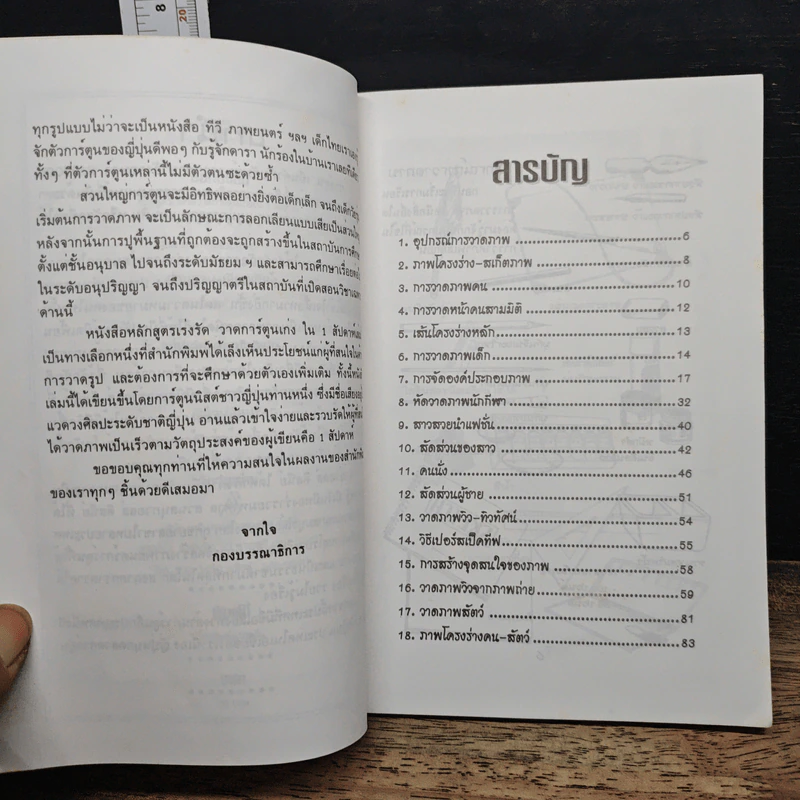 8
20
ทุกรูปแบบไม่ว่าจะเป็นหนังสือ ทีวี ภาพยนตร์ ฯลฯ เด็กไทยเรา
จักตัวการ์ตูนของญี่ปุ่นดีพอๆ กับรู้จักดารา นักร้องในบ้านเราเลย
ทั้งๆ ที่ตัวการ์ตูนเหล่านี้ไม่มีตัวตนซะด้วยซ้ำ
ส่วนใหญ่การ์ตูนจะมีอิทธิพลอย่างยิ่งต่อเด็กเล็ก จนถึง
เริ่มต้นการวาดภาพ จะเป็นลักษณะการลอกเลียนแบบเสียเป็นส่วน
หลังจากนั้นการปูพื้นฐานที่ถูกต้องจะถูกสร้างขึ้นในสถาบันการ
ตั้งแต่ชั้นอนุบาล ไปจนถึงระดับมัธยม ฯ และสามารถศึกษา
ในระดับอนุปริญญา จนถึงปริญญาตรีในสถาบันที่เปิดสอนวิชา
ด้านนี้
หนังสือหลักสูตรเร่งรัด วาดการ์ตูนเก่ง ใน 1 สัปดาห์
เป็นทางเลือกหนึ่งที่สำนักพิมพ์ได้เล็งเห็นประโยชน์แก่ผู้ที่สนใจ
การวาดรูป และต้องการที่จะศึกษาด้วยตัวเองเพิ่มเติม ทั้งนี้
เล่มนี้ได้เขียนขึ้นโดยการ์ตูนนิสต์ชาวญี่ปุ่นท่านหนึ่ง ซึ่งมีชื่อเสียง
แวดวงศิลประดับชาติญี่ปุ่น อ่านแล้วเข้าใจง่ายและรวบรัดให้ผู้
ได้วาดภาพเป็นเร็วตามวัตถุประสงค์ของผู้เขียนคือ 1 สัปดาห์
ขอขอบคุณทุกท่านที่ให้ความสนใจในผลงานของ
ของเราทุกๆ ชิ้นด้วยดีเสมอมา
จากใจ
กองบรรณาธิการ
สารบัญ
1. อุปกรณ์การวาดภาพ ........ 6
2. ภาพโครงร่าง-สเก็ตภาพ ........ 8
3. การวาดภาพคน ........ 10
4. การวาดหน้าคนสามมิติ ........ 12
5. เส้นโครงร่างหลัก ........ 13
6. การวาดภาพเด็ก ........ 14
7. การจัดองค์ประกอบภาพ ........ 17
8. หัดวาดภาพนักกีฬา ........ 32
9. สาวสวยนำแฟชั่น ........ 40
10. สัดส่วนของสาว ........ 42
11. คนนั่ง ........ 46
12. สัดส่วนผู้ชาย ........ 51
13. วาดภาพวิว-ทิวทัศน์ ........ 54
14. วิธีเปอร์สเป็คทีฟ ........ 55
15. การสร้างจุดสนใจของภาพ ........ 58
16. วาดภาพวิวจากภาพถ่าย ........ 59
17. วาดภาพสัตว์ ........ 81
18. ภาพโครงร่างคน-สัตว์ ........ 83